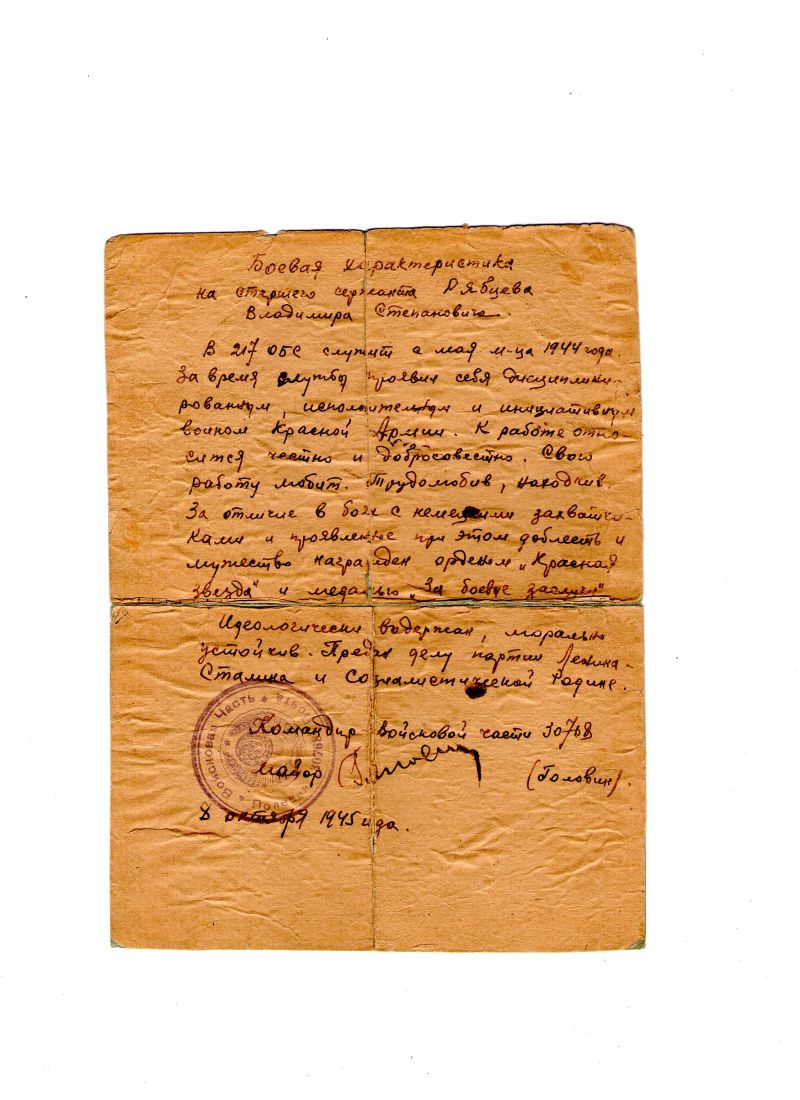 Боевая характеристика
на старшего сержанта Рябцева
Владимира Степановича.
В 217 ОБС служит с мая м-ца 1944 года.
За время службы проявил себя дисциплини-
рованным, исполнительным и инициативным
воином Красной Армии. К работе отно-
сится честно и добросовестно. Свою
работу любит. Трудолюбив, находчив.
За отличие в боях с немецкими захватчи-
ками и проявленное при этом доблесть и
мужество награжден орденом „Красная
звезда" и медалью „За боевые заслуги"
Идеологически выдержан, морально
устойчив. Предан делу партии Ленина-
Сталина и Социалистической Родине.
Командир Войсковой части 30768
майор (Головин).
8 октября 1945 года.
Войсковая Часть